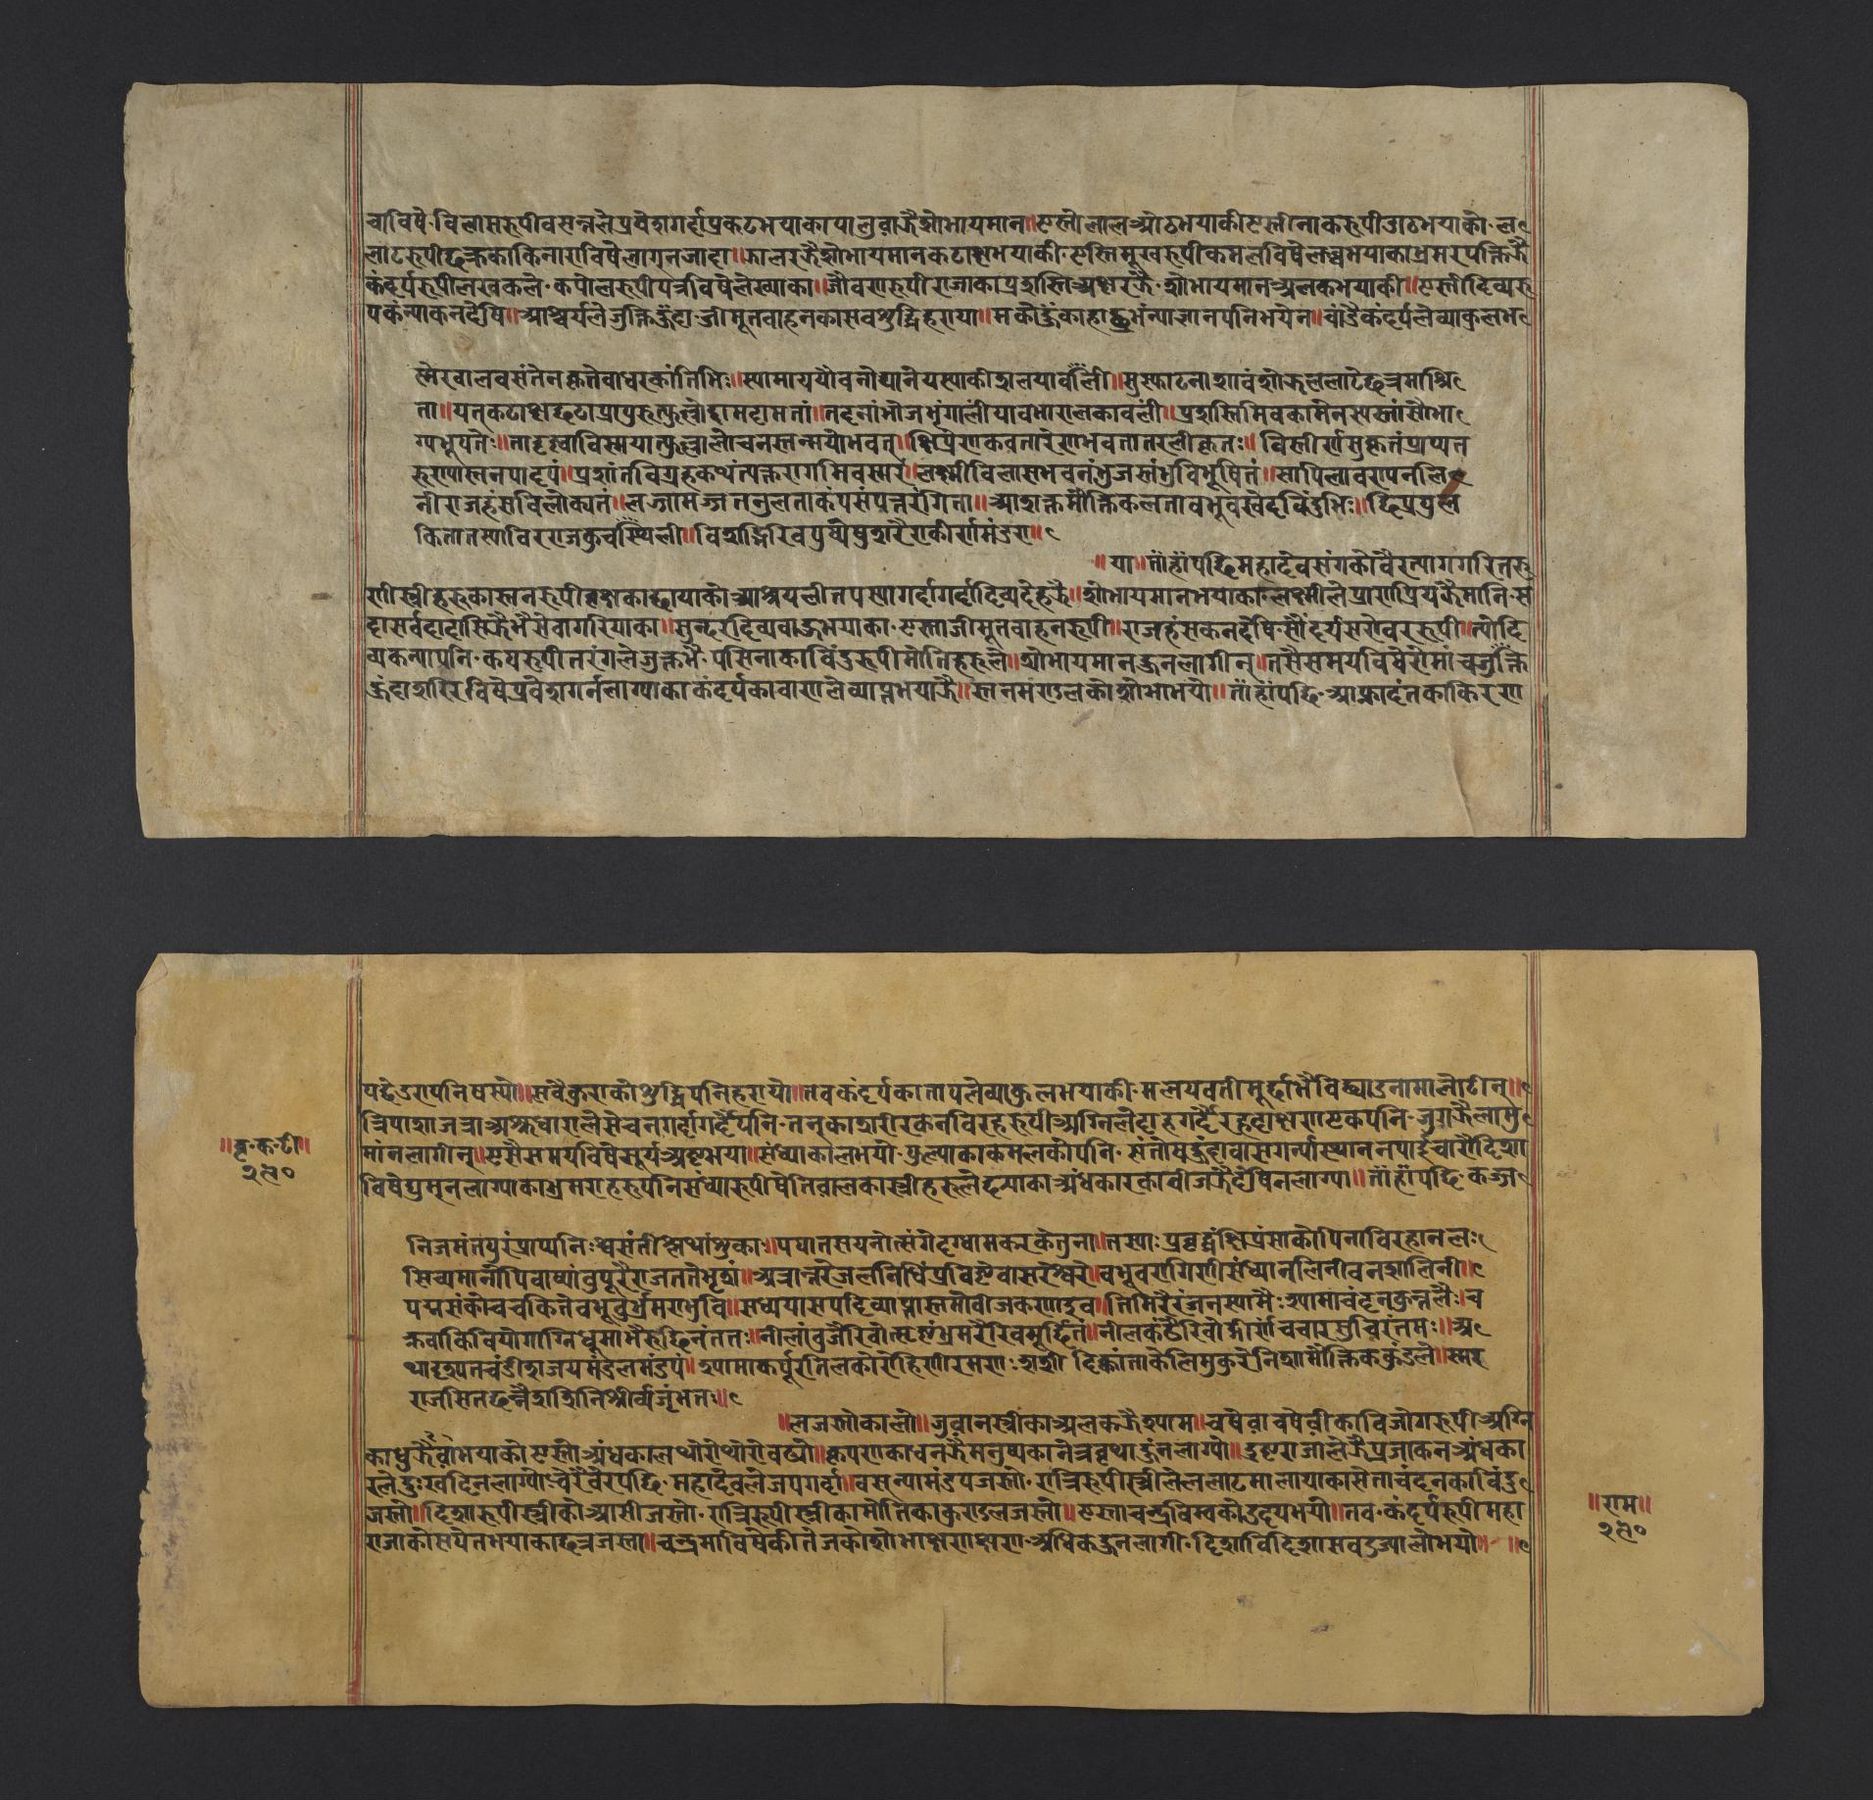 चाविषे॰विलासरूपीवसन्तलेप्रवेशगर्दाप्रकटभयाकापालुवाझैशोभायमान॥एस्तोलालओठभयाकीएस्तीनाकरूपीडाठभयाको॰ल
लाटरूपीछत्रकाकिनाराविषेलागुनजादा॥झालरझैशोभायमानकटाक्षभयाकी॰एस्तिमुखरूपीकमलविषेलुब्धभयाकाभ्रमरपंक्तिझै
कंदर्परूपीलेखकले॰कपोलरूपीपत्रविषेलेख्याका॥जौवनरूपीराजाकाप्रशस्तिअक्षरझै॰शोभायमानअलकभयाकी॥एस्तीदिव्यरू
पकन्याकनदेषि॥आश्चर्यलेजुक्तिहुंदा॰जीमूतवाहनकासबशुद्धिहराया॥मकोहुंकाहाछुभन्याज्ञानपनिभयेन॥चांडैकंदर्पलेव्याकुलभ
स्मेरबालवसंतेनकृतेवाधरकांतिभिः॥स्यामाययौवनोद्यानेयस्याकीशलयावली॥सुस्फाटनाशावंशोरुललाटेछत्रमाश्रि
ता॥यत्कटाक्षछटाप्रापुरुत्फुल्लोद्दामदामतां॥तद्दनांभोजभृंगालीयावभारालकावलीं॥प्रशस्तिमिवकामेनन्यस्तांसौभा
ग्यभूपतेः॥तादृष्ट्वाविस्मयोत्फुल्लालोचनस्तन्मयोभवत्॥क्षिप्रेणाकवतारेणभवतातरलीकृतः॥विस्तीर्णसुकृतंप्राप्यत
रुणास्तनपादपं॥प्रशांतविग्रहकथंत्यक्तरागमिवस्मरं॥लक्ष्मीविलासभवनंभुजस्तंभविभूषितं॥सापिलावण्यनलि
नीराजहंसविलोक्यतं॥लज्जामज्जतनुलताकंपसंपन्नरंगिता॥आशक्तमौक्तिकलताबभूवस्वेदबिंदुभिः॥क्षिप्रपुल
कितातस्याविरराजकुचस्थली॥विशद्भिरिवपुष्पेषुशरैराकीर्णमंडरा॥
॥या॥ताँहाँपछिमहादेवसंगकोवैरत्यागगरितरु
णीस्त्रीहरुकास्तनरूपीवृक्षकाछायाकोआश्रयलीतपस्यागर्दागर्दादिव्यदेहझै॥शोभायमानभयाका॰लक्ष्मीलेप्राणप्रियझैमानि॰स
दासर्वदादासिझैभैसेवागरियाका॥सुन्दरदिव्यबाहुभयाका॰एस्ताजीमूतवाहनरूपी॥राजहंसकनदेषि॰सौंदर्यसरोवररूपी॥त्योदि
व्यकन्यापनि॰कंपरूपीतरंगलेजुक्तभै॰पसिनाकाबिंदुरूपीमोतिहरुले॥शोभायमानहुनलागीन्॥तसैसमयविषेरोमांचजुक्ति
हुंदाशरिरविषेप्रवेशगर्नलाग्याकाकंदर्पकाबाणलेव्याप्तभयाझै॥स्तनमण्डलकोशोभाभयो॥ताँहाँपछि॰आफ्नादंतकाकिरण
पर्द्देडरापनिषस्यो॥सबैकुराकोशुद्धिपनिहरायो॥तबकंदर्पकातापलेव्याकुलभयाकी॰मलयवतीमूर्छाभैविछ्याउनामालोटीन्॥
त्रिपाशाजत्राअश्रुधारालेसेचनगर्दागर्दैपनि॰तनुकाशरीरकनविरहरूपीअग्निलेदाहगर्दैरहदाक्षणएकपनि॰जुगझैलामु
मांनलागीन्॥एसैसमयविषेसूर्यअष्टभया॥संध्याकालभयो॰पुल्याकाकमलकोपनि॰संतोषहुंदावासगर्न्यास्थाननपाईचारैदिशा
विषेघुम्नलाग्याकाभ्रमराहरुपनिसंध्यारूपीषेतिवालकास्त्रीहरुलेछर्याकाअंधकारकावीजझैदेषिनलाग्या॥ताँहाँपछि॰कज्ज
निजमंतपुरंप्राप्यनिःश्वसंतीश्लथांशुका॥पपातसयनोत्संगेदग्धामकरकेतुना॥तस्याःप्रवृद्धंक्षिप्रंसाकोपिनाविरहानलः
सिच्यमानोपिवाष्पांबुपूरैराजततेभृशं॥अत्रान्तरेजलनिधिंप्रविष्टेवासरेश्वरे॥बभूवरागिणीसंध्यानलिनीवनशालिनी॥
पद्मसंकोचचकितेबभूवुर्भ्रमराभुवि॥सध्ययासपदिव्याप्तास्तमोबीजकणाइव॥तिमिरैरंजनस्यामैःश्यामाचंदनकुन्तलैः॥च
क्रवाकिवियोगाग्निधूमाभैरुछिनंततः॥नीलांबुजैरिवोत्सृष्टंभ्रमरैरिवमूर्छितं॥नीलकंठैरिवोद्गीर्णंचचारसुचिरंतमः॥अ
थादृश्यतचंडीशजयमंडलमंडपं॥श्यामाकर्पूरतिलकोरोहिणीरमणःशशी॥दिक्कांताकेलिमुकुरेनिशामौक्तिककुंडले॥स्मर
राजसितछत्रैशशिनिश्रीर्व्यजृंभत॥
॥लजस्तोकालो॥जुवानस्त्रीकाअलकझैश्याम॥चषेवाचषेवीकाविजोगरूपीअग्नि
काधुवाँझैभयाकोएस्तोअंधकालथोरोथोरोबढ्यो॥कृपणकाधनझैमनुष्यकानेत्रवृथाहुंनलाग्यो॥दुष्टराजालेझैप्रजाकनअंधका
रलेदुःखदिनलाग्यो॰बेरैबेरपछि॰महादेवलेजपगर्दा॥बसन्यामंडपजस्तो॰रात्रिरूपीस्त्रीलेललाटमालायाकासेताचंदनकाबिंदु
जस्तो॥दिशारूपीस्त्रीकोआसीजस्तो॰रात्रिरूपीस्त्रीकामोतिकाकुण्डलजस्तो॥एस्ताचन्द्रविम्वकोउदयभयो॥तब॰कंदर्परूपीमहा
राजाकोसयेतभयाकाछत्रजस्ता॥चन्द्रमाविषेकीतेजकोशोभाक्षणक्षण॰अधिकहुनलागी॰दिशाविदिशासबउज्यालोभयो॥
॥बृ॰क॰टी॥
२९०
॥राम॥
२९०